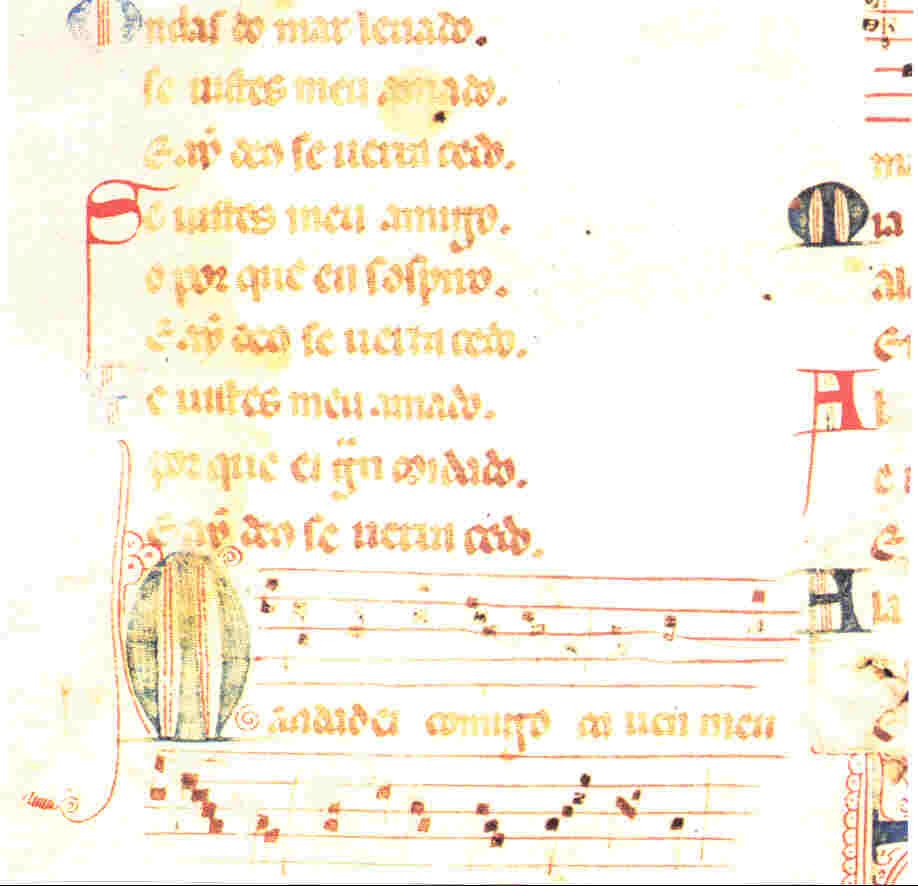 Ondas do mar leuado.
se uistes meu amado.
E ay deo se uerra cedo.
Se uistes meu amigo.
o por que eu sospiro.
E ay deo se uerra cedo.
Se uistes meu amado.
por que ei gran coidado.
E ay deo se uerra cedo.
Mandadei comigo ca uen meu